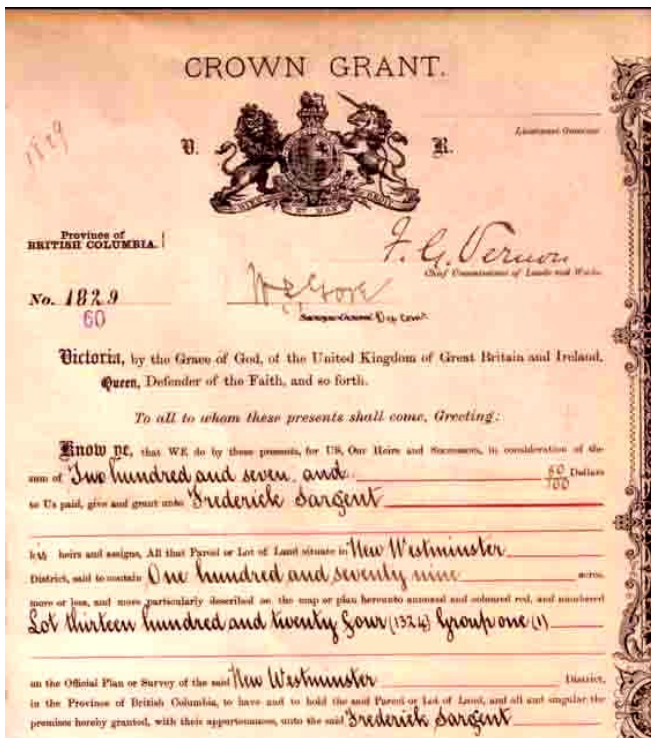 CROWN GRANT.
V. R.
Lieutenant Governor
1829
DIEU ET MON DROIT
Province of
BRITISH COLUMBIA.
F. G. Vernon
Chief Commissioner of Lands and Works.
No. 1829
60
W S Gore
Surveyor-General Dep Comr
Victoria, by the Grace of God, of the United Kingdom of Great Britain and Ireland,
Queen, Defender of the Faith, and so forth.
To all to whom these presents shall come, Greeting:
Know ye, that WE do by these presents, for US, Our Heirs and Successors, in consideration of the
sum of Two hundred and seven and 60/100 Dollars
to Us paid, give and grant unto Frederick Sargent
his heirs and assigns, All that Parcel or Lot of Land situate in New Westminster
District, said to contain One hundred and seventy nine acres,
more or less, and more particularly described on the map or plan hereunto annexed and coloured red, and numbered
Lot thirteen hundred and twenty four (1324) Group one (1)
on the Official Plan or Survey of the said New Westminster District,
in the Province of British Columbia, to have and to hold the said Parcel or Lot of Land, and all and singular the
premises hereby granted, with their appurtenances, unto the said Frederick Sargent